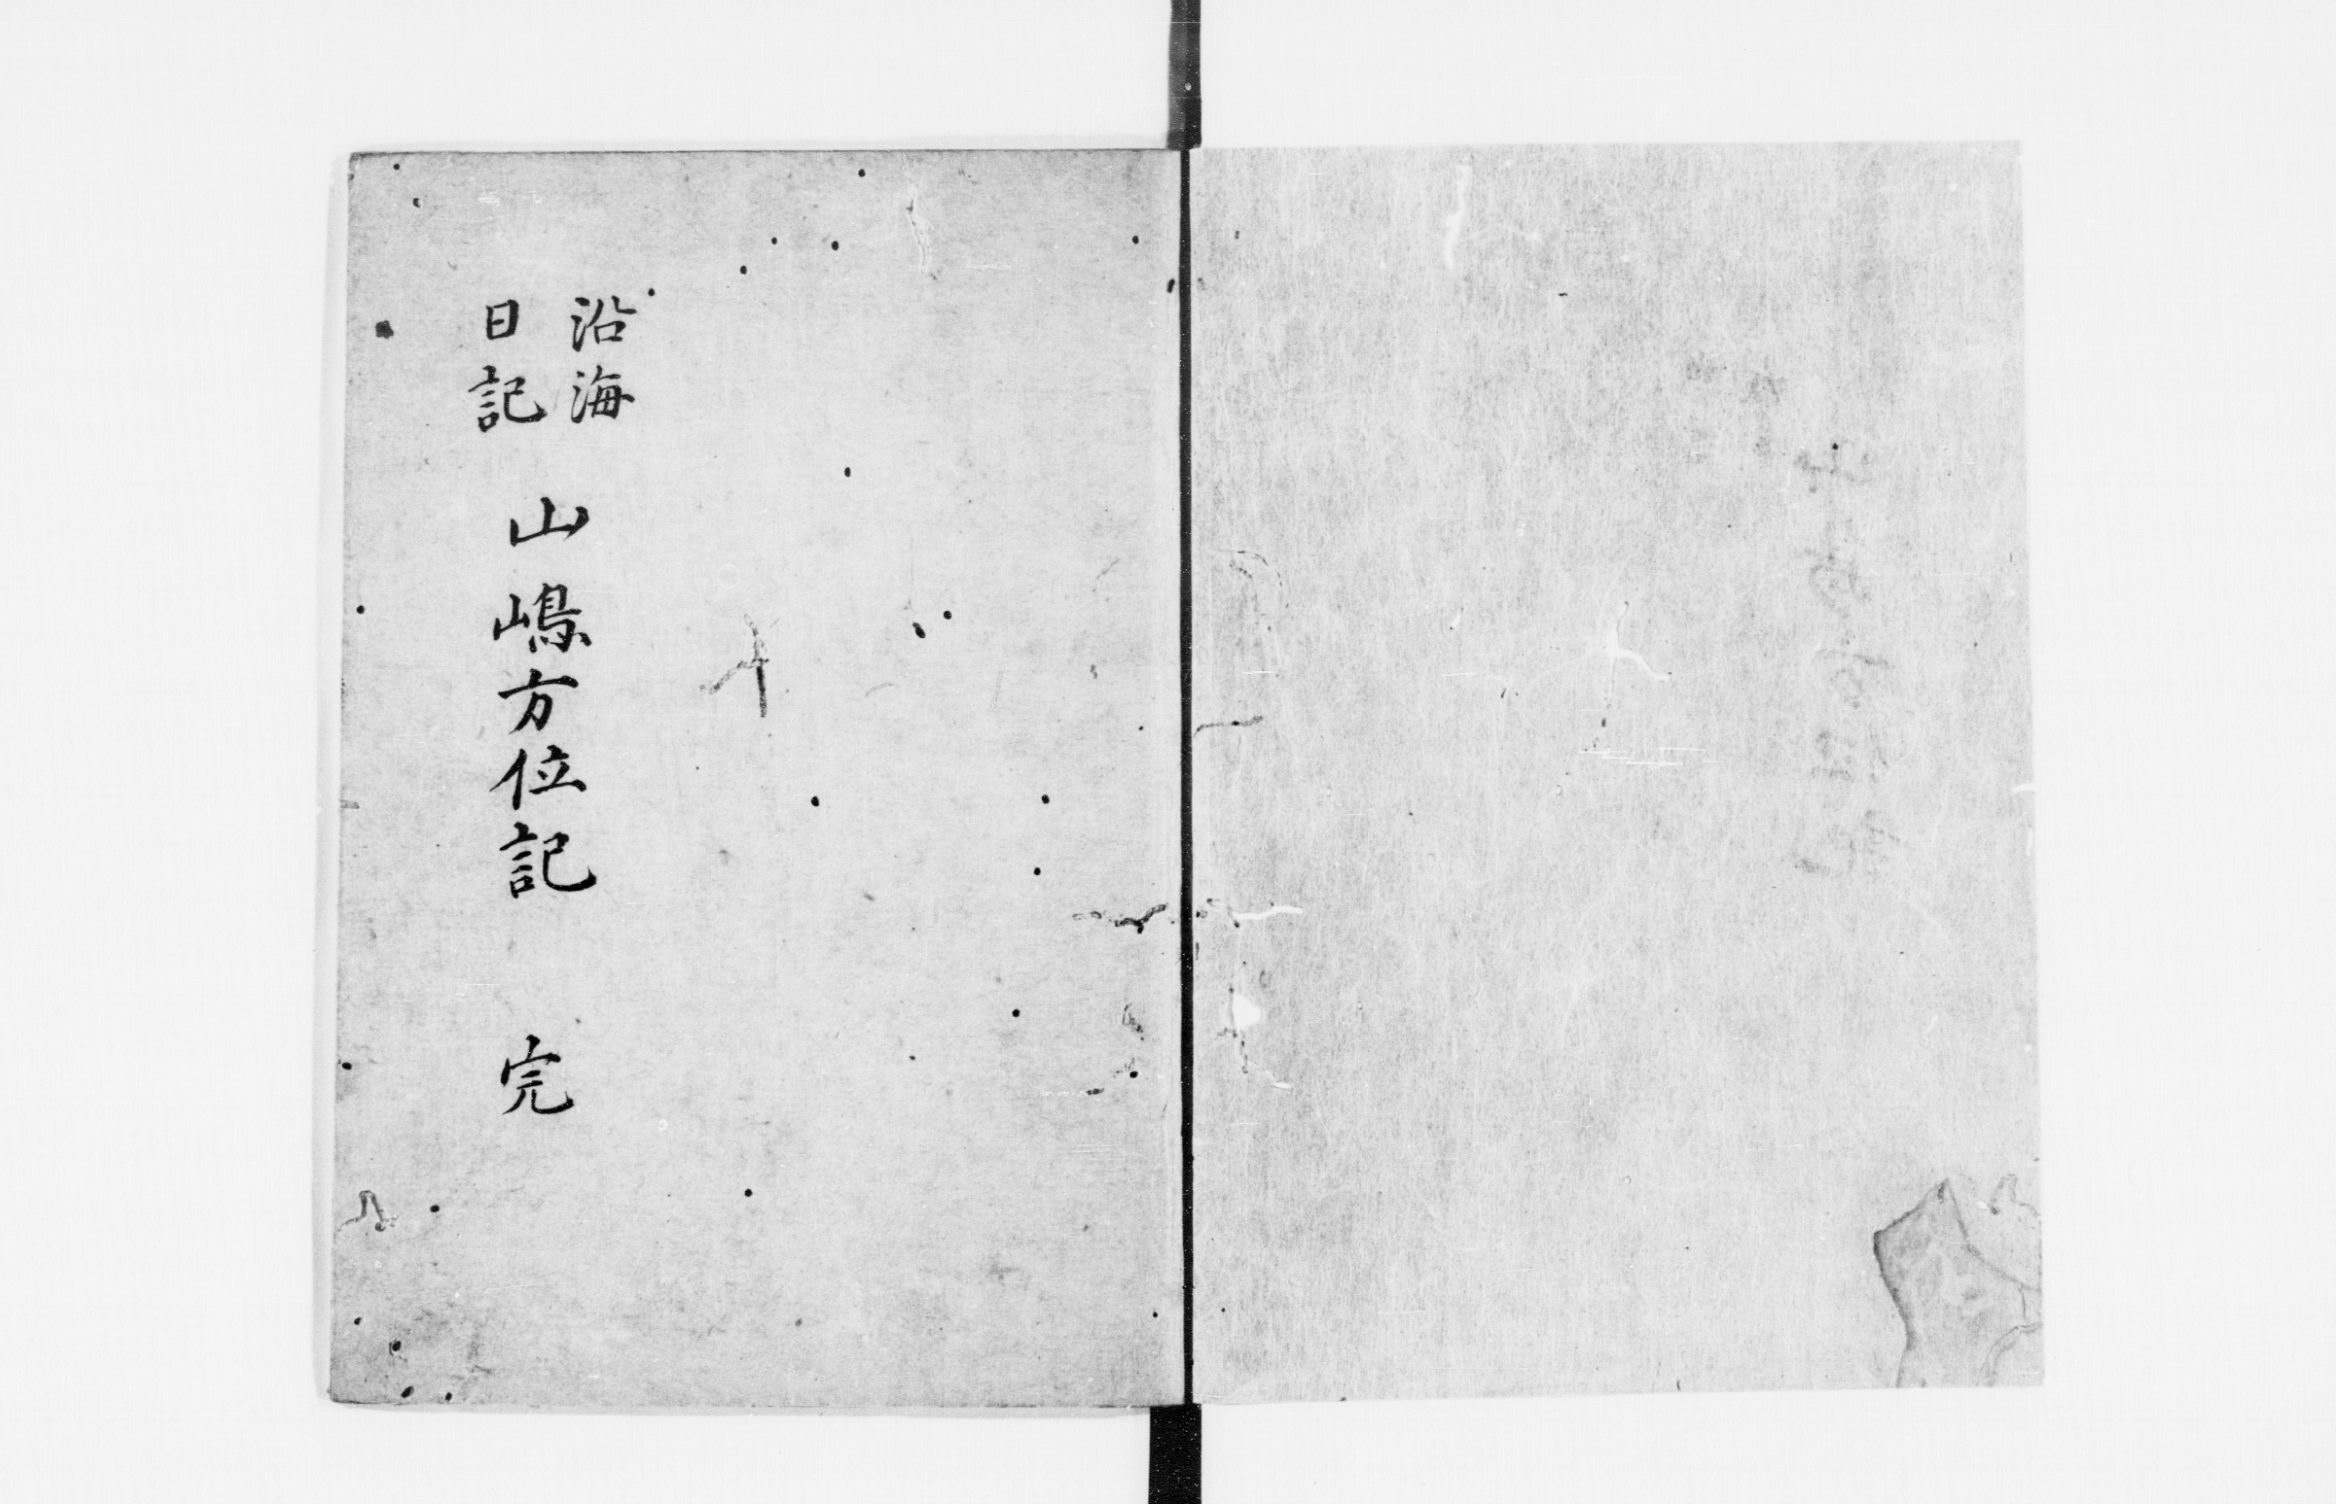 沿海
日記
山嶋方位記
完